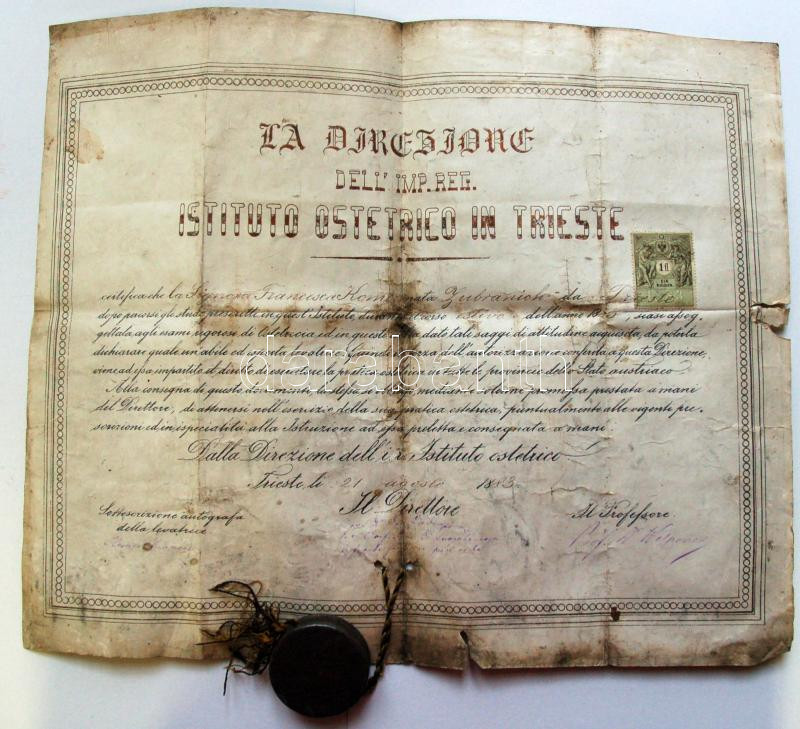 LA DIREZIONE
DELL' IMP. REG.
ISTITUTO OSTETRICO IN TRIESTE
1 fl.
certifica che la Signora Francesca nata Zubranich da Trieste
dopo percorsi gli studi prescritti in quest'Istituto, durante il corso estivo dell'anno 1883, siasi assog-
gettata agli esami rigorosi di Ostetricia ed in questi abbia dato tali saggi di attitudine acquisita, da poterla
dichiarare quale un'abile ed esperta levatrice. Quindi in forza dell'autorizzazione conferita a questa Direzione,
viene ad essa impartito il diritto di esercitare la pratica ostetrica in tutte le provincie dello Stato austriaco.
Alla consegna di questo documento, la stessa si obbliga mediante solenne promessa prestata a mani
del Direttore, di attenersi nell'esercizio della sua pratica ostetrica, puntualmente alle vigenti pre-
scrizioni ed in ispecialità alla Istruzione ad essa predetta e consegnata a mani.
Dalla Direzione dell'i. r. Istituto ostetrico
Trieste, li 21 agosto 1883.
Sottoscrizione autografa
della levatrice
Il Direttore
Il Professore
darabanth